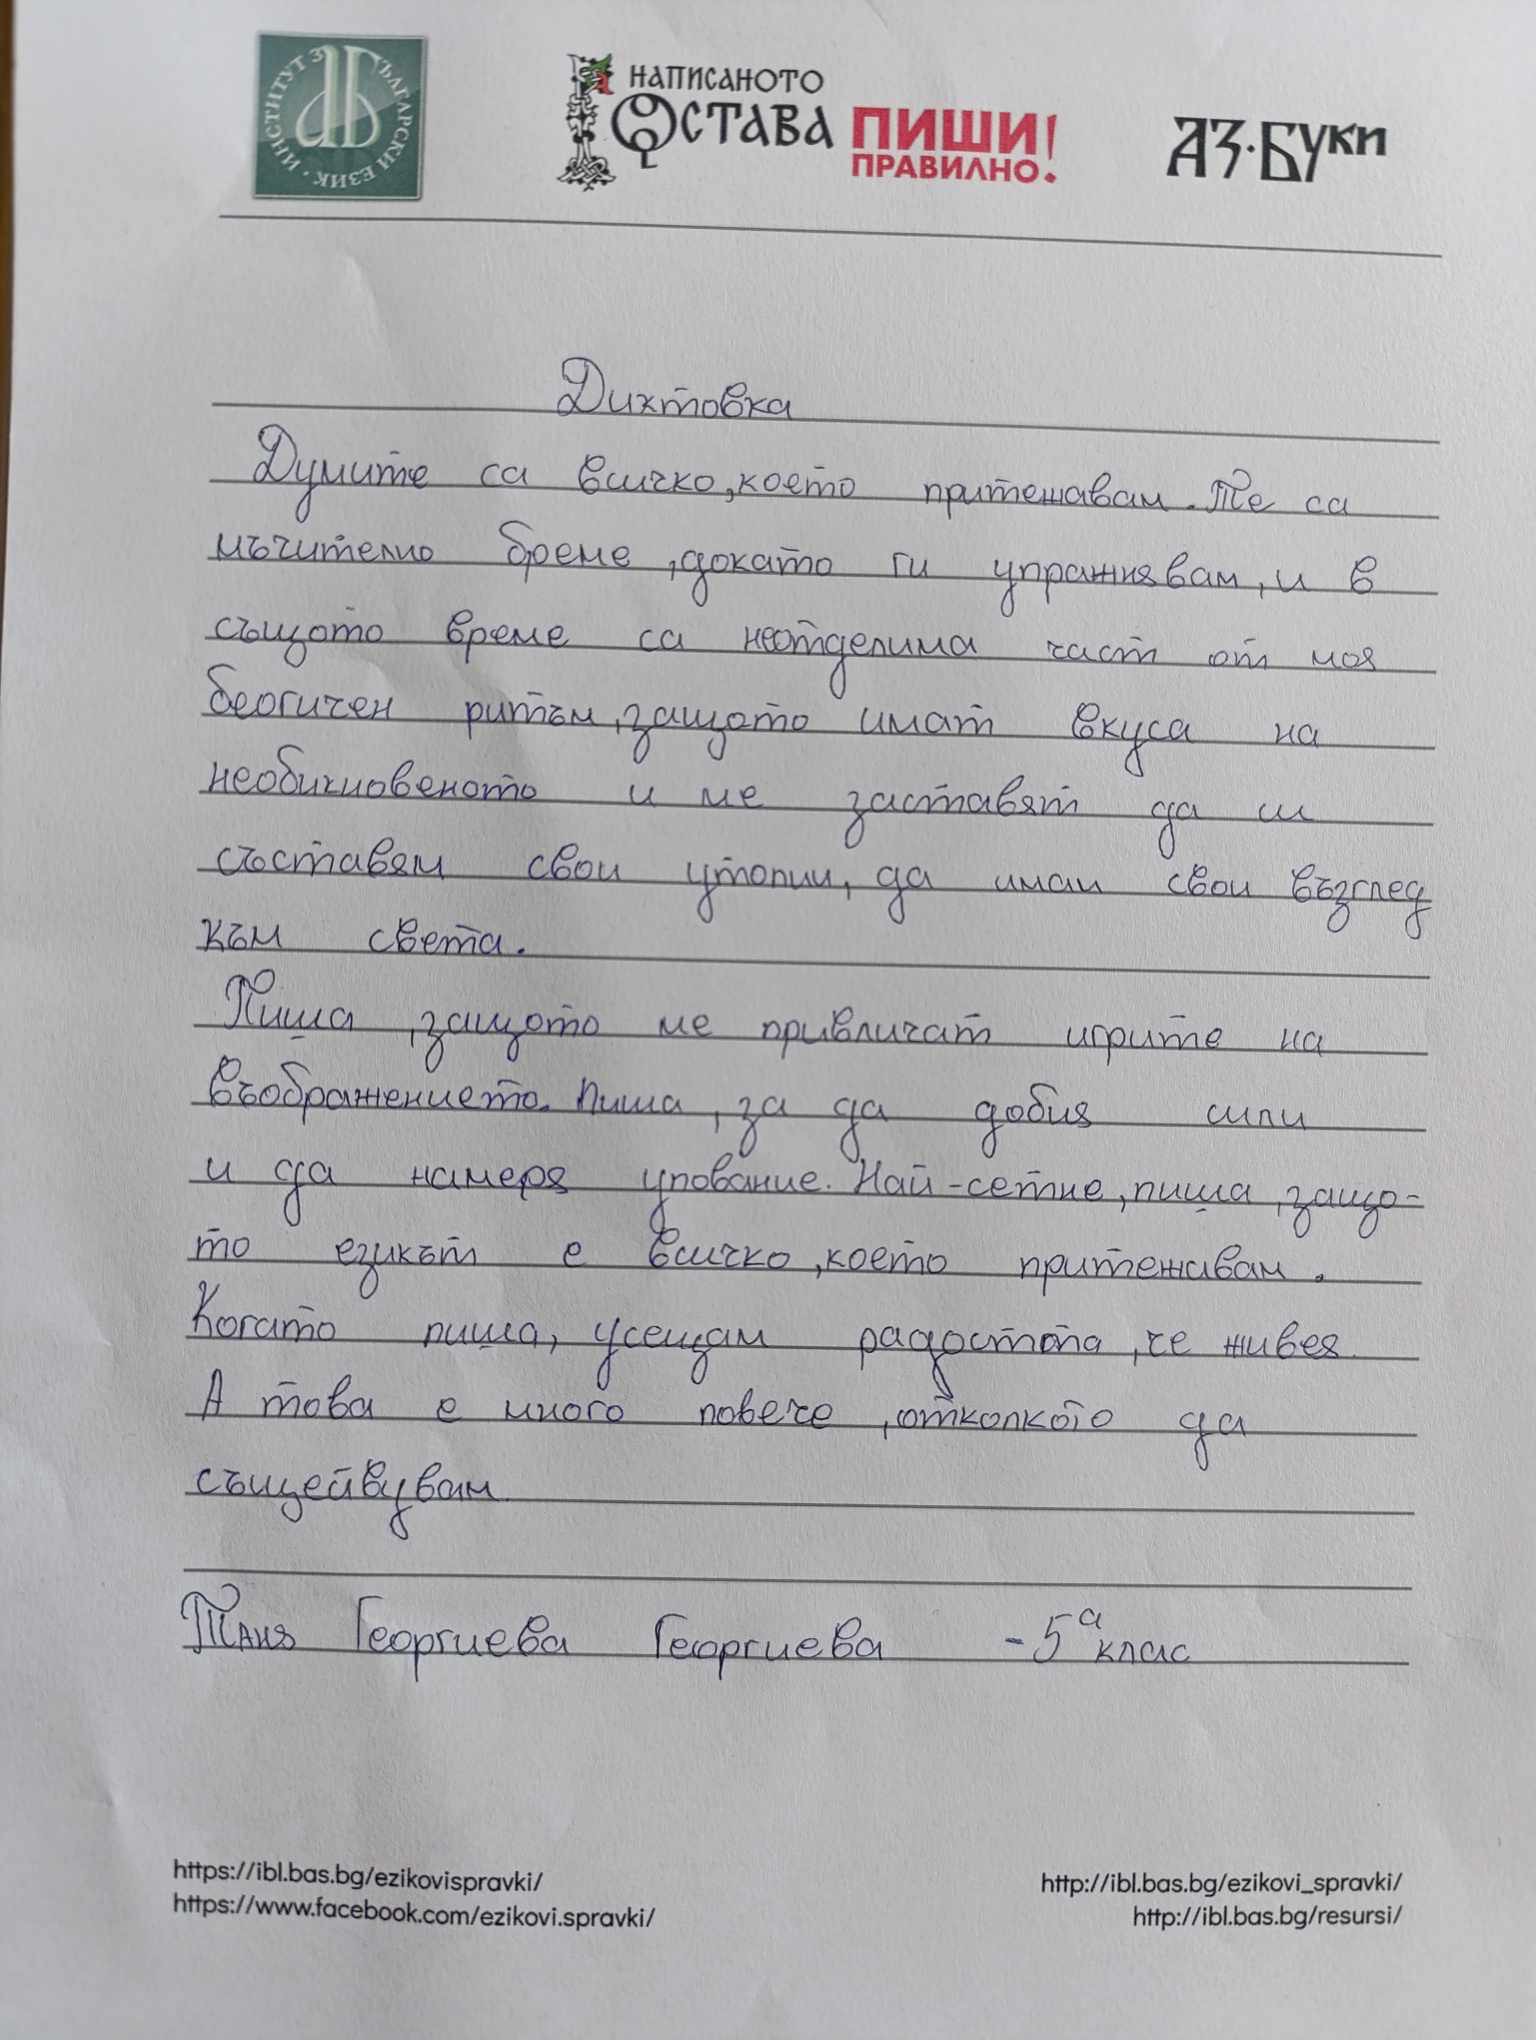 ИНСТИТУТ ЗА БЪЛГАРСКИ ЕЗИК
НАПИСАНОТО
ОСТАВА
ПИШИ!
ПРАВИЛНО.
АЗ·БУКИ
Диктовка
Думите са всичко, което притежавам. Те са
мъчително бреме, докато ги упражнявам, и в
същото време са неотделима част от моя
беогичен ритъм, защото имат вкуса на
необикновеното и ме заставят да си
съставям свои утопии, да имам свои възглед
към света.
Пиша, защото ме привличат игрите на
въображението. Пиша, за да добия сили
и да намеря упование. Най-сетне, пиша, защо-
то езикът е всичко, което притежавам.
Когато пиша, усещам радостта, че живея.
А това е много повече, отколкото да
същейвувам.
Таня Георгиева Георгиева - 5а клас
https://ibl.bas.bg/ezikovispravki/
https://www.facebook.com/ezikovi.spravki/
http://ibl.bas.bg/ezikovi_spravki/
http://ibl.bas.bg/resursi/